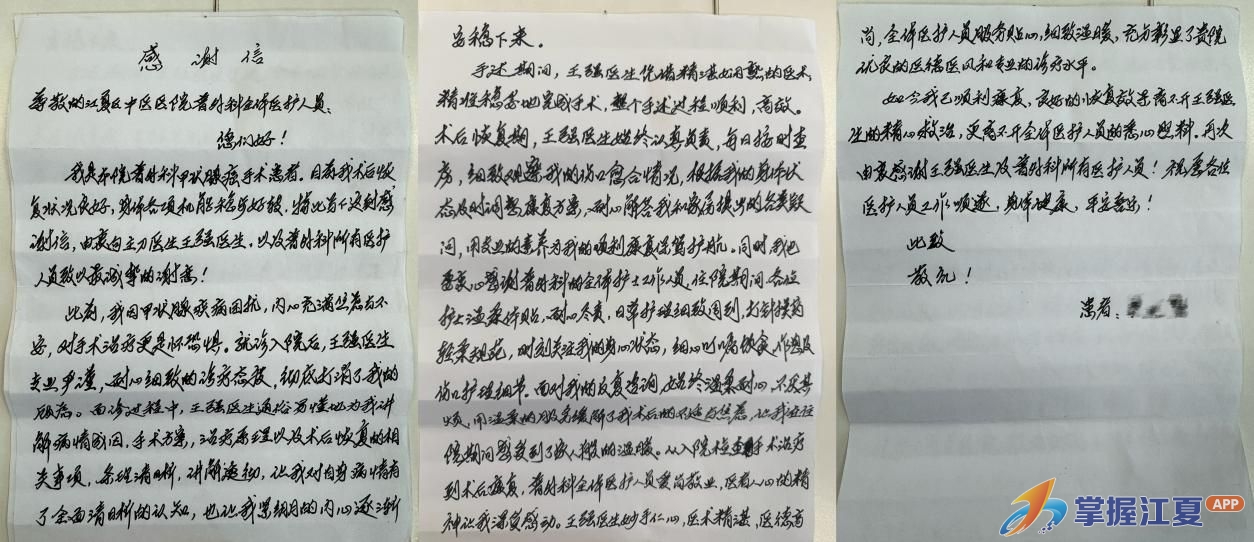 感谢信
尊敬的江夏区中医医院普外科全体医护人员：
您们好！
我是本院普外科甲状腺癌手术患者。目前我术后恢
复状况良好，身体各项机能稳步好转，特此写下这封感
谢信，由衷向主刀医生王强医生，以及普外科所有医护
人员致以最诚挚的谢意！
此前，我因甲状腺疾病困扰，内心充满焦虑与不
安，对手术治疗更是怀恐惧。就诊入院后，王强医生
专业严谨，耐心细致的诊疗态度，彻底打消了我的
顾虑。面诊过程中，王强医生通俗易懂地为我讲
解病情成因，手术方案，治疗原理以及术后恢复的相
关事项，条理清晰，讲解透彻，让我对自身病情有
了全面清晰的认知，也让我紧绷的内心逐渐
安稳下来。
手术期间，王强医生凭借精湛娴熟的医术，
精准稳妥地完成手术，整个手术过程顺利，高效。
术后恢复期，王强医生始终认真负责，每日按时查
房，细致观察我的伤口愈合情况，根据我的身体状
态及时调整康复方案，耐心解答我和家属提出的各类疑
问，用专业的素养为我的顺利康复保驾护航。同时我也
要衷心感谢普外科的全体护士工作人员，住院期间各位
护士温柔体贴，耐心尽责，日常护理细致周到，打针换药
轻柔规范，时刻关注我的身心状态，细心叮嘱饮食、作息及
伤口护理细节。面对我的反复咨询，始终温柔耐心，不厌其
烦，用温柔的服务缓解了我术后的不适与焦虑，让我在住
院期间感受到了家人般的温暖。从入院检查，手术治疗
到术后康复，普外科全体医护人员爱岗敬业，医者仁心的精
神让我深受感动。王强医生妙手仁心，医术精湛，医德高
尚，全体医护人员服务贴心，细致温暖，充分彰显了贵院
优良的医德医风和专业的诊疗水平。
如今我已顺利康复，良好的恢复效果离不开王强医
生的精心救治，更离不开全体医护人员的悉心照料。再次
由衷感谢王强医生及普外科所有医护人员！祝愿各位
医护人员工作顺遂，身体健康，平安喜乐！
此致
敬礼！
患者：
掌握江夏 APP